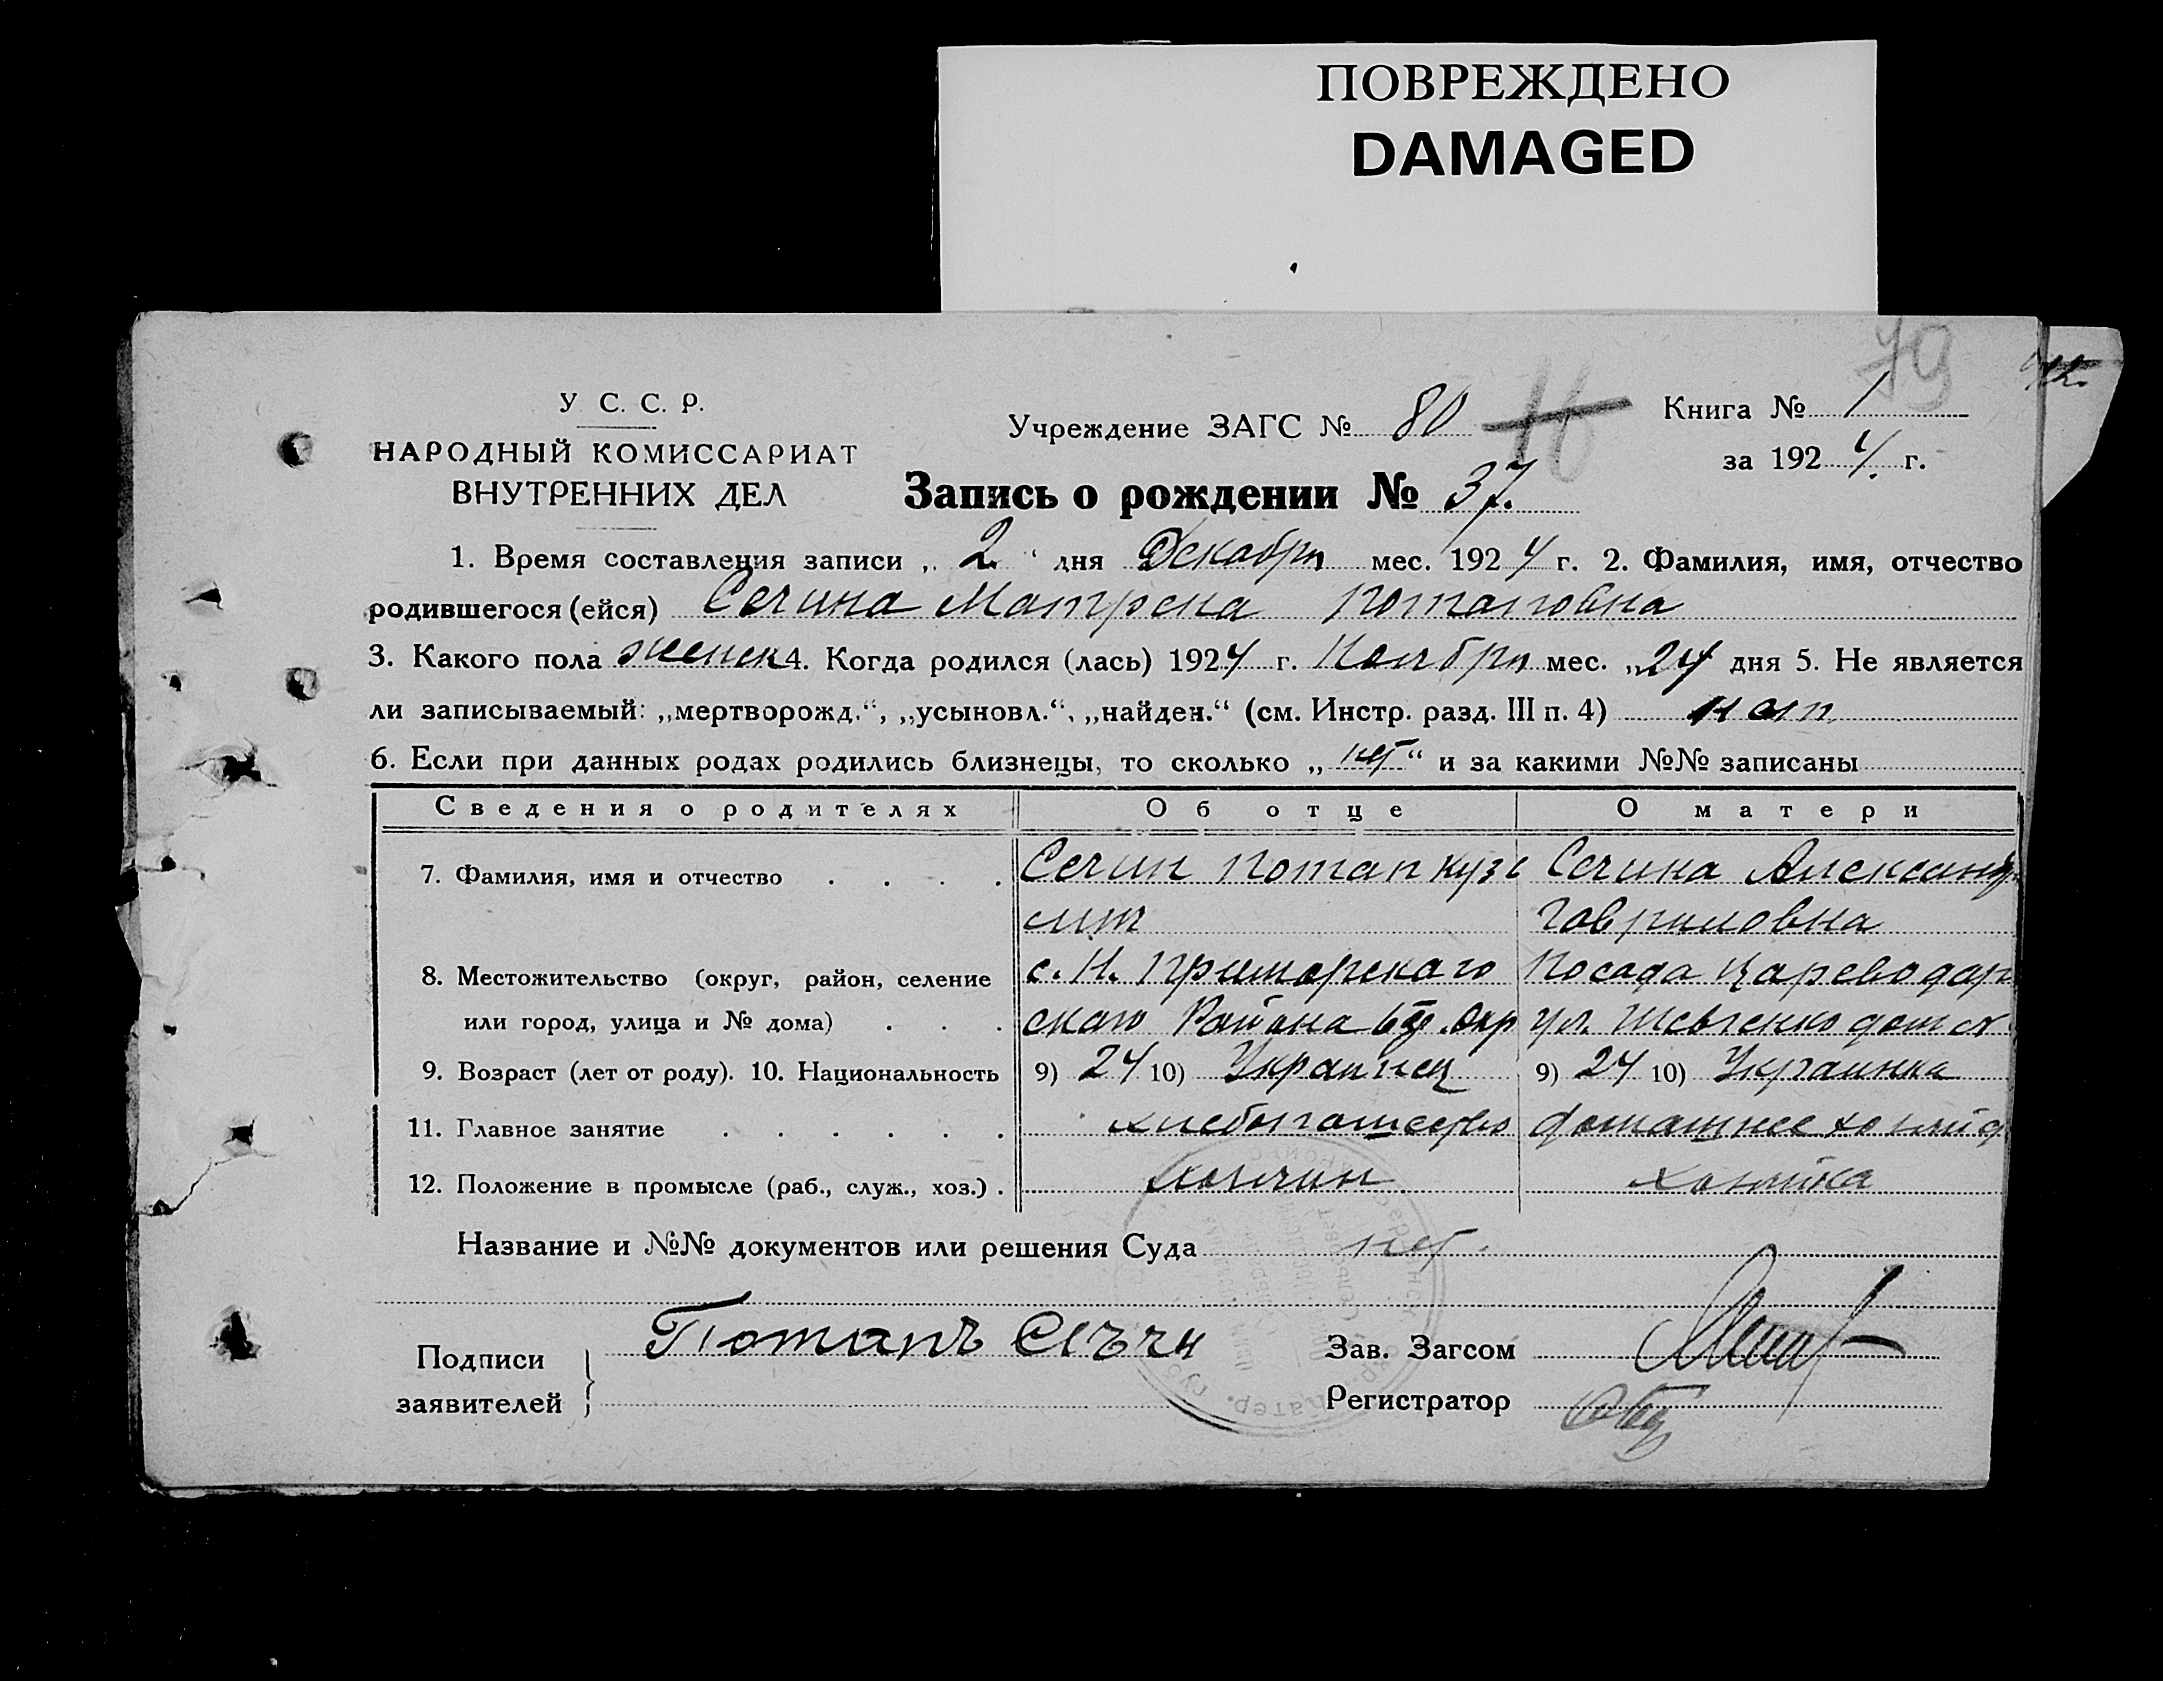 ПОВРЕЖДЕНО
DAMAGED
79
У. С. С. Р.
НАРОДНЫЙ КОМИССАРИАТ
ВНУТРЕННИХ ДЕЛ
Учреждение ЗАГС № 80 16
Книга № 1
за 1924 г.
Запись о рождении № 37.
1. Время составления записи „ 2 “ дня Декабря мес. 1924 г. 2. Фамилия, имя, отчество
родившегося (ейся) Сечина Матрена Потаповна
3. Какого пола женск 4. Когда родился (лась) 1924 г. Ноября мес. „24 дня 5. Не является
ли записываемый: „мертворожд.“, „усыновл.“, „найден.“ (см. Инстр. разд. III п. 4) нет
6. Если при данных родах родились близнецы, то сколько „ нет “ и за какими №№ записаны
Сведения о родителях Об отце О матери
7. Фамилия, имя и отчество . . . . Сечин Потап Кузь Сечина Александр
мич Гавриловна
8. Местожительство (округ, район, селение с. Н. Приморского Посада Цареводар
или город, улица и № дома) . . . ского Района Бер. Окр ул. Шевченко дом
9. Возраст (лет от роду). 10. Национальность 9) 24 10) Украинец 9) 24 10) Украинка
11. Главное занятие . . . . . . хлебопашество домашнее хозяйс
12. Положение в промысле (раб., служ., хоз.) . хозяин хозяйка
Название и №№ документов или решения Суда нет.
Подписи заявителей } Потапъ Сѣчн
Зав. Загсом
Регистратор